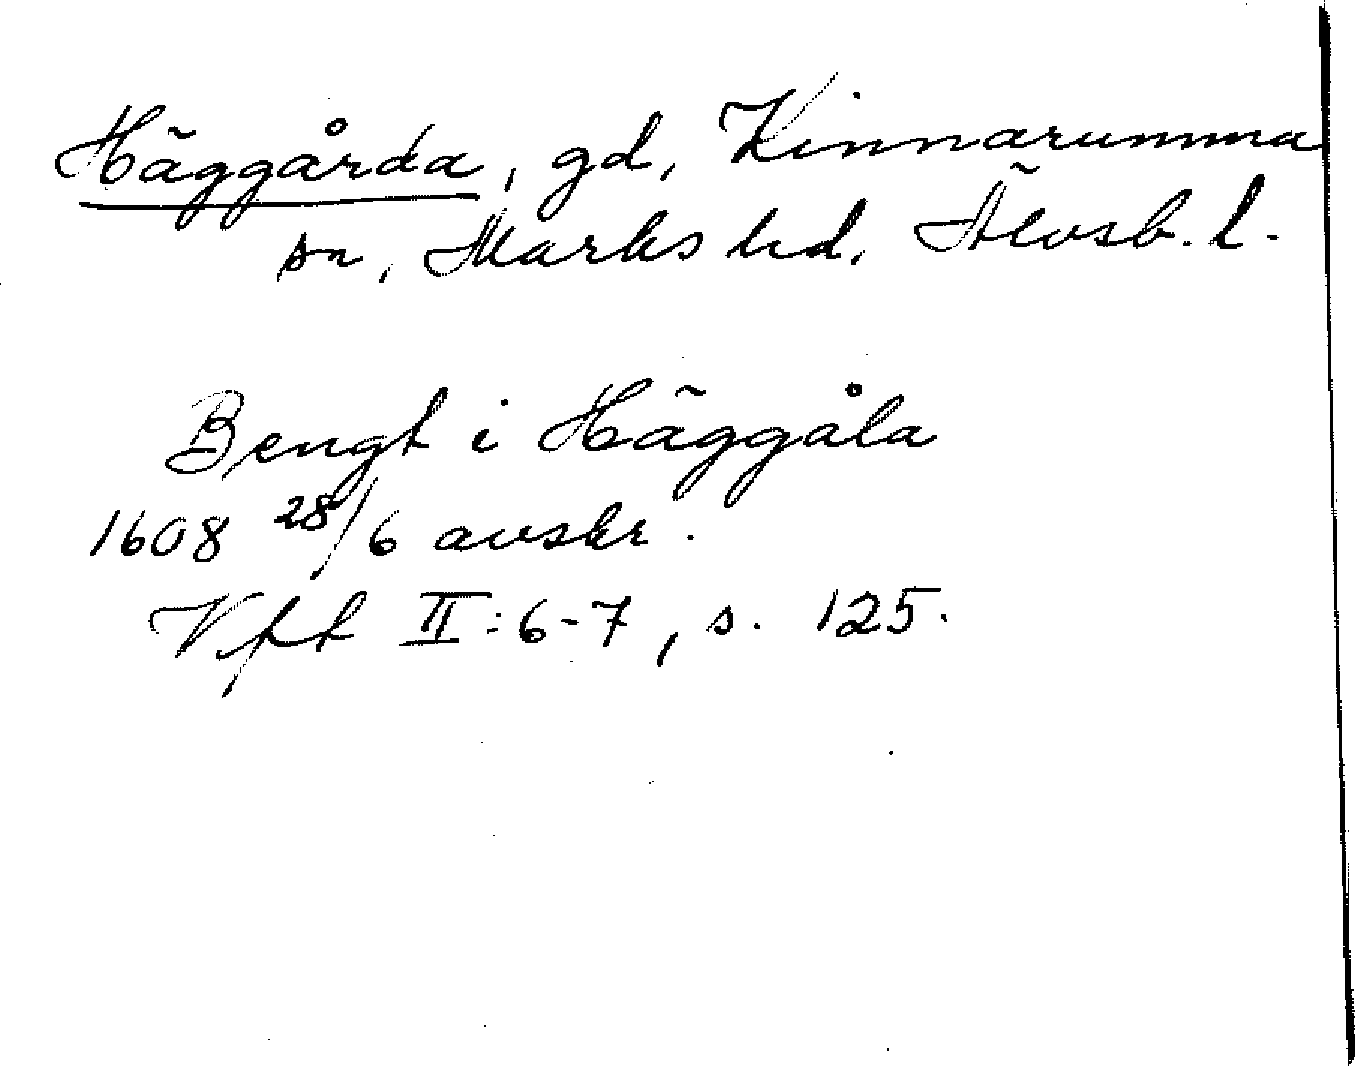 Häggårda, gd, Kinnarumma
sn, Marks hd, Älvsb. l.
Bengt i Häggåla
1608 28/6 avskr.
Vft II:6-7, s. 125.